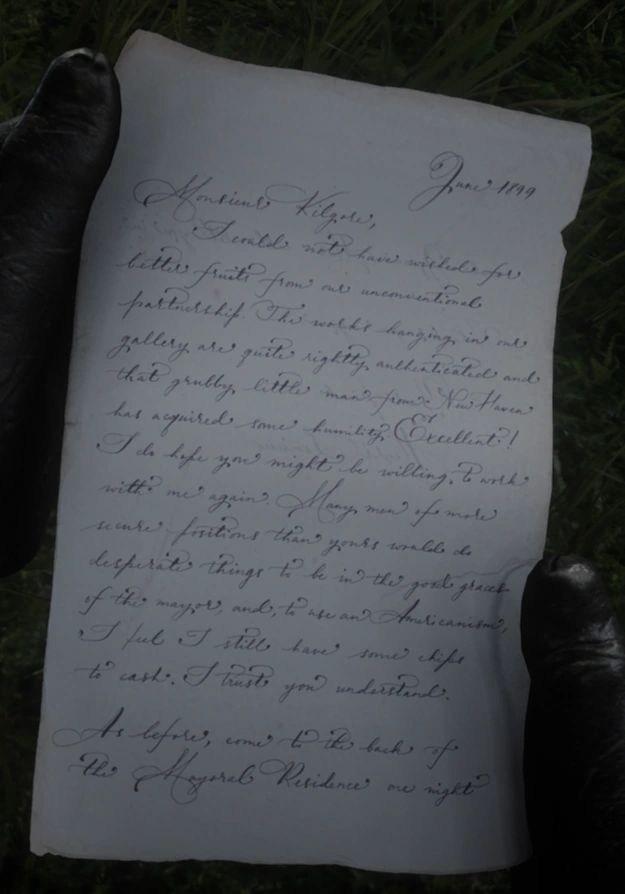 June 1899
Monsieur Kilgore,
I could not have wished for
better fruits from our unconventional
partnership. The works hanging in our
gallery are quite rightly authenticated and
that grubby little man from New Haven
has acquired some humility. Excellent!
I do hope you might be willing to work
with me again. Many men of more
secure positions than yours would do
desperate things to be in the good graces
of the mayor, and, to use an Americanism,
I feel I still have some chips
to cash. I trust you understand.
As before, come to the back of
the Mayoral Residence one night